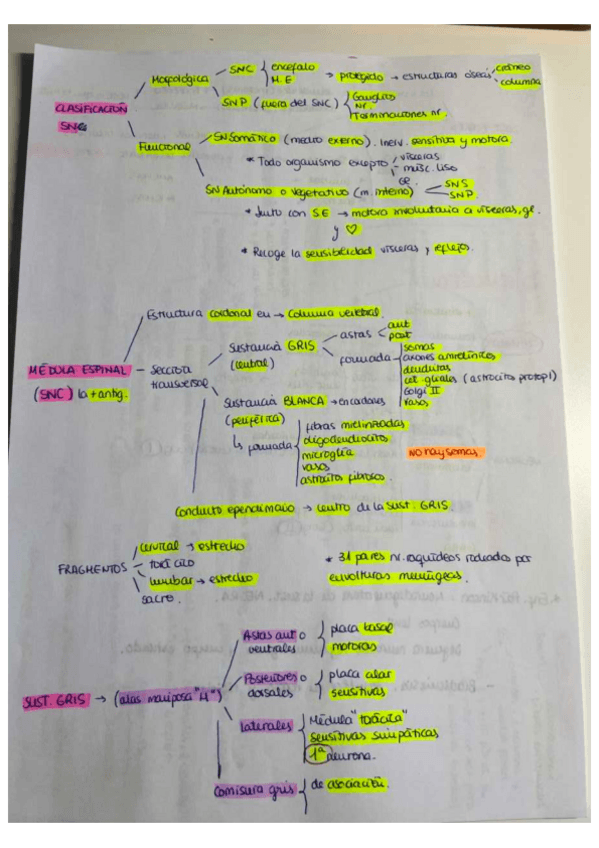 Morfológica
SNC
encéfalo
M.E
protegido → estructuras óseas
cráneo
columna
SNP (fuera del SNC)
Ganglios
Nr.
Terminaciones nr.
CLASIFICACIÓN
SNC
Funcional
SN Somático (medio externo). Inerv. sensitiva y motora.
* Todo organismo excepto
vísceras
musc. liso
ge.
SN Autónomo o vegetativo (m. interno)
SNS
SNP
* Junto con SE → motora involuntaria a vísceras, gl.
y ♡
* Recoge la sensibilidad vísceras y reflejos.
Estructura cordonal en → columna vertebral.
MÉDULA ESPINAL
(SNC) la + antig.
Sección
transversal
Sustancia GRIS
(central)
astas
ant
post
formada
somas
axones amielínicos
dendritas
cel. gliales (astrocito protopl)
Golgi II
vasos
Sustancia BLANCA → cordones
(periférica)
↳ formada
fibras mielinizadas
oligodendrocitos
microglía
vasos
astrocitos fibrosos.
NO hay somas.
Conducto ependimario → centro de la sust. GRIS
FRAGMENTOS
cervical → estrecho
torácico
lumbar → estrecho
sacro.
* 31 pares nr. raquídeos rodeados por
envolturas meníngeas.
SUST. GRIS → (alas mariposa "H")
Astas ant o
ventrales
placa basal
motoras
Posteriores o
dorsales
placa alar
sensitivas
laterales
Médula "torácica"
sensitivas simpáticas
1ª neurona.
Comisura gris
de asociación.